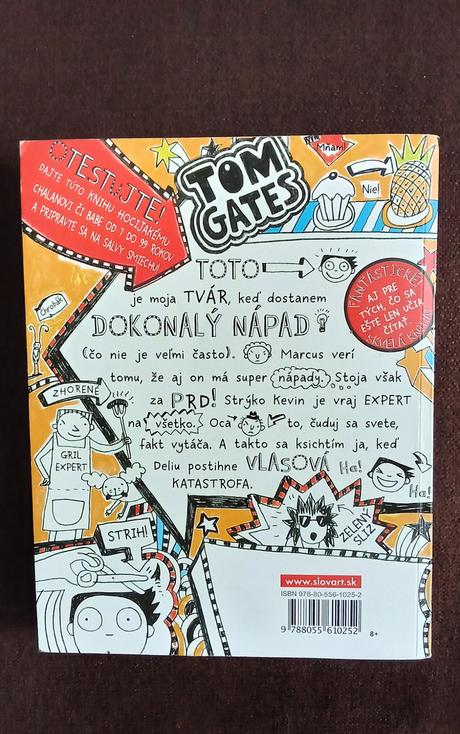 OTESTUJTE!
DAJTE TÚTO KNIHU HOCIJAKÉMU
CHALANOVI ČI BABE OD 7 DO 99 ROKOV
A PRIPRAVTE SA NA SALVY SMIECHU
TOM
GATES
Mňam!
Nie!
TOTO
je moja TVÁR, keď dostanem
DOKONALÝ NÁPAD
(čo nie je veľmi často). Marcus verí
tomu, že aj on má super nápady. Stoja však
za PRD! Strýko Kevin je vraj EXPERT
na všetko. Oca to, čuduj sa svete,
fakt vytáča. A takto sa ksichtím ja, keď
Deliu postihne VLASOVÁ
KATASTROFA.
Ha!
Ha!
FANTASTICKÉ!
AJ PRE
TÝCH, ČO SA
EŠTE LEN UČIA
ČÍTAŤ.
SKVELÁ KNIHA
Chrobák
ZHORENÉ
GRIL
EXPERT
STRIH!
ZELENÝ
SLIZ
www.slovart.sk
ISBN 978-80-556-1025-2
9 788055 610252
8+